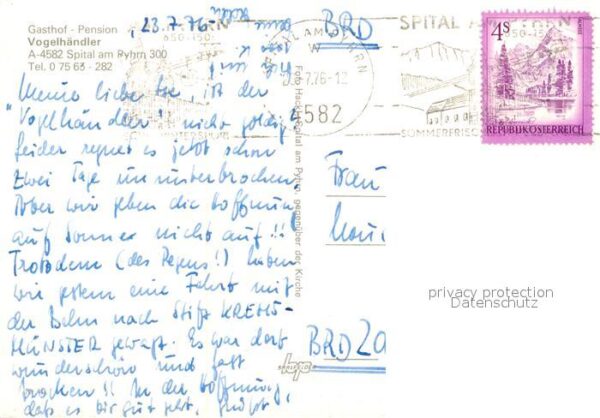 Gasthof - Pension
Vogelhändler
A-4582 Spital am Pyhrn 300
Tel. 0 75 63 - 282
23.7.76
Meine liebe, ist der
"Vogelhändler" nicht goldig?
Leider regnet es jetzt schon
zwei Tage ununterbrochen.
Aber wir geben die Hoffnung
auf Sonne nicht auf!!
Trotzdem (des Regens!) haben
wir gestern eine Fahrt mit
der Bahn nach Stift KREMS-
MÜNSTER gewagt. Es war dort
wunderschön und fast
trocken!! In der Hoffnung,
daß es Dir gut geht, grüßt
Foto Hackl, Spital am Pyhrn, gegenüber der Kirche
BRD
SPITAL AM PYHRN
850-150
SOMMERFRISCHE
7.76-12
4582
4S
REPUBLIK ÖSTERREICH
Frau
BRD
privacy protection
Datenschutz